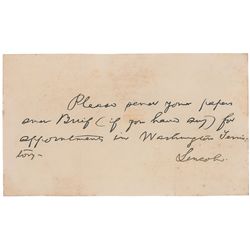 Please send your papers
and Brief (if you have any) for
appointments in Washington Terri-
tory-
Lincoln.